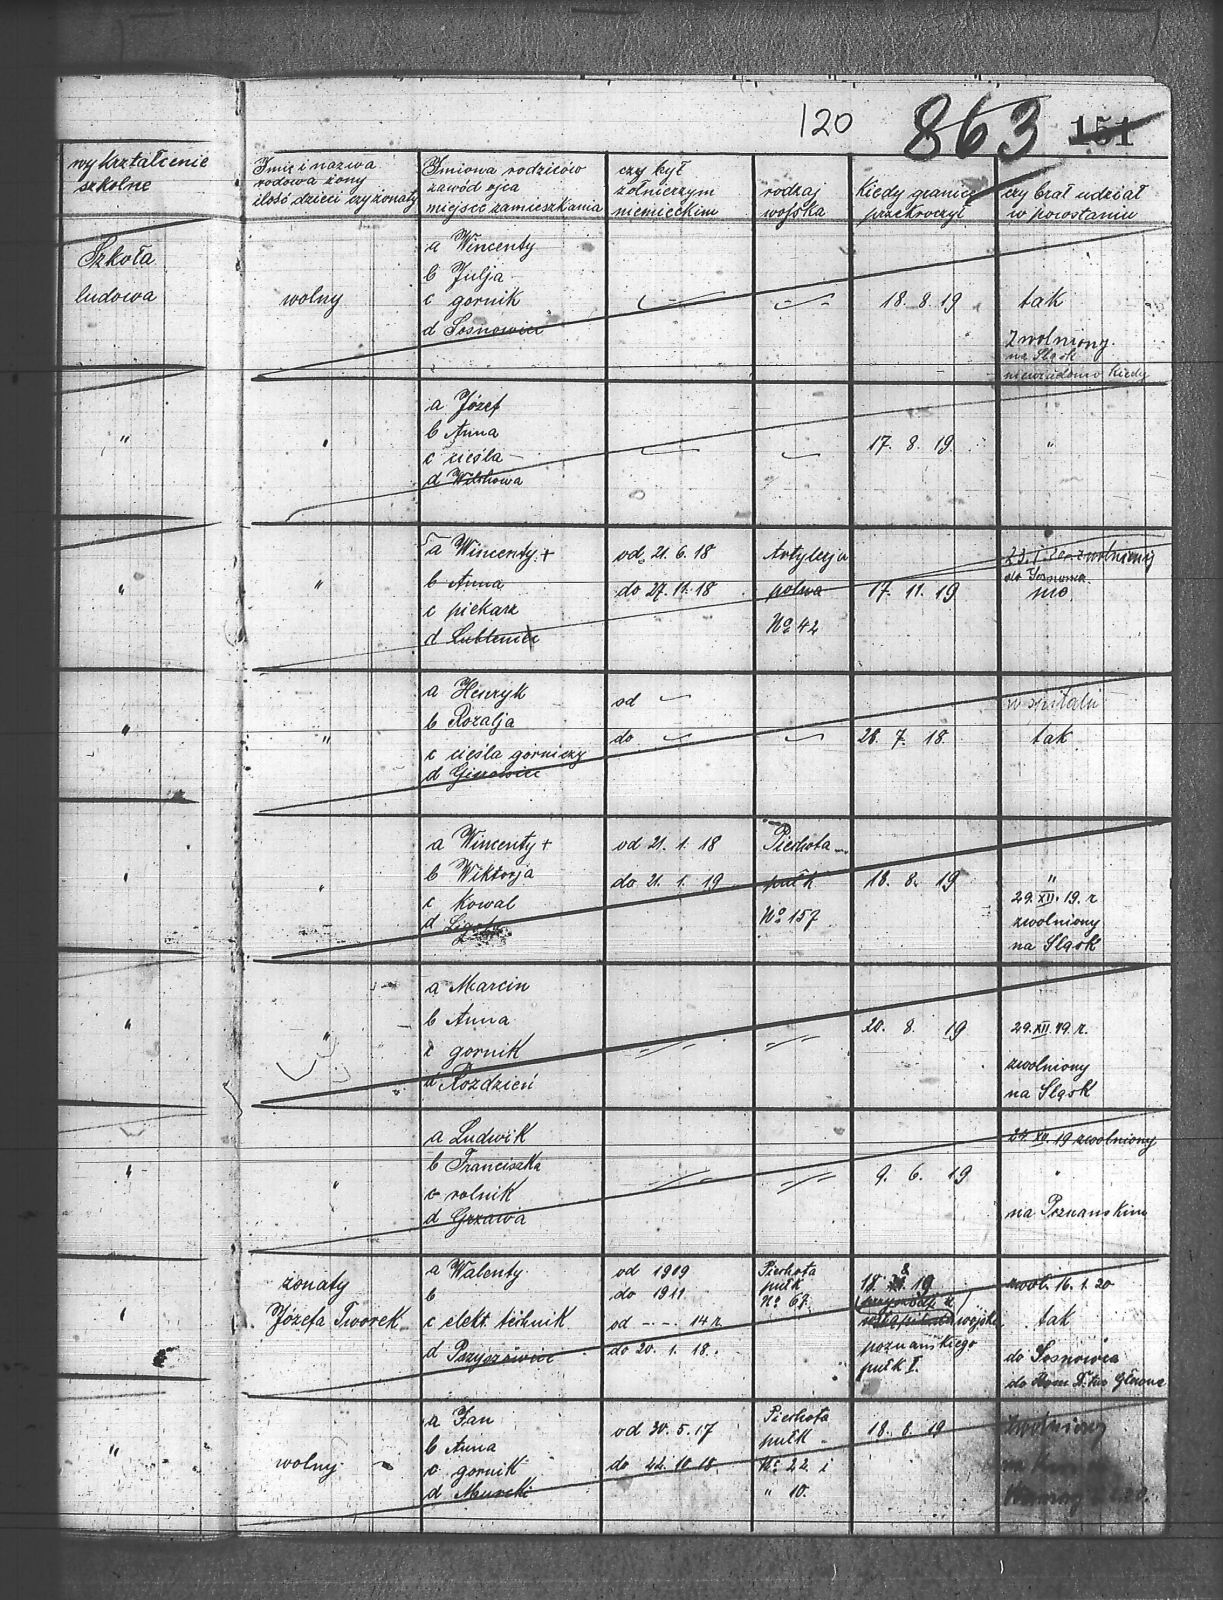 120 863 151
wykształcenie
szkolne
Imię i nazwa
rodowa żony
ilość dzieci czy żonaty
Imiona rodziców
zawód ojca
miejsce zamieszkania
czy był
żołnierzym
niemieckim
rodzaj
wojska
Kiedy granicę
przekroczył
czy brał udział
w powstaniu
Szkoła
ludowa
wolny
a Wincenty
b Julja
c gornik
d Sosnowiec
18. 8. 19
tak
Zwolniony
na Śląsk
niewiadomo kiedy
"
"
a Józef
b Anna
c cieśla
d
17. 8. 19
"
"
"
a Wincenty +
b Anna
c piekarz
d Lubleniec
od 21. 6. 18
do 27. 11. 18
Artylerja
polna
No 42
17. 11. 19
zwolniony
do Sosnowca
nie
"
"
a Henryk
b Rozalja
c cieśla górniczy
d Giszowiec
od
do
28. 7. 18.
w szpitalu
tak
"
"
a Wincenty +
b Wiktorja
c Kowal
d Ligota
od 21. 1. 18
do 21. 1. 19
Piechota
pułk
No 157
18. 8. 19
"
29. XII. 19. r
zwolniony
na Śląsk
"
"
a Marcin
b Anna
c gornik
d Rozdzień
20. 8. 19
29. XII. 19. r.
zwolniony
na Śląsk
"
"
a Ludwik
b Franciszka
c rolnik
d Grzawa
9. 6. 19
24. XII. 19 zwolniony
"
na Poznanskim
"
żonaty
Józefa Tworek
a Walenty
b
c elekt. technik
d Pszyszowice
od 1909
do 1911
od - - - 14 r.
do 20. 1. 18.
Piechota
pułk
No 67.
8
18. 19
wojska
poznanskiego
pułk I.
zwol. 16. 1. 20
tak
do Sosnowca
do
"
wolny
a Jan
b Anna
c gornik
d Murcki
od 30. 5. 17
do 22. 10. 18.
Piechota
pułk
No 22. i
" 10.
18. 8. 19
Zwolniony